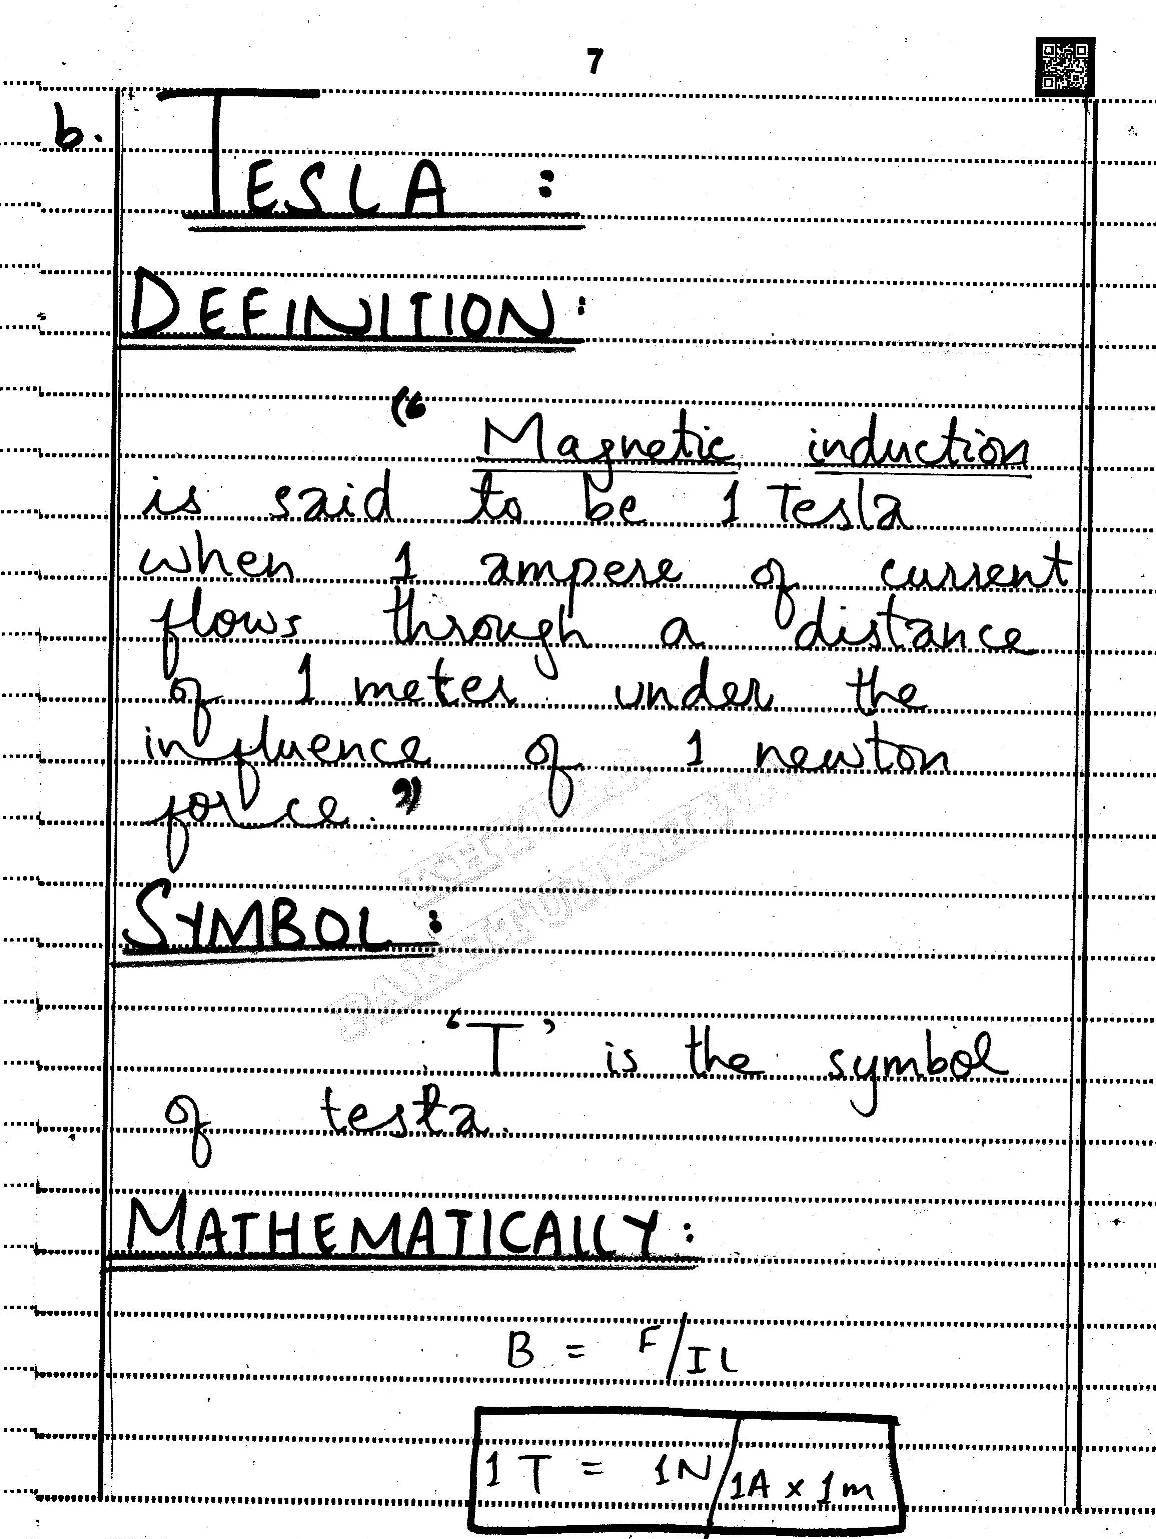 7
b.
TESLA :
DEFINITION:
“ Magnetic induction
is said to be 1 Tesla
when 1 ampere of current
flows through a distance
of 1 meter under the
influence of 1 newton
force.”
SYMBOL:
‘T’ is the symbol
of tesla.
MATHEMATICALLY:
B = F/IL
1T = 1N/1A x 1m